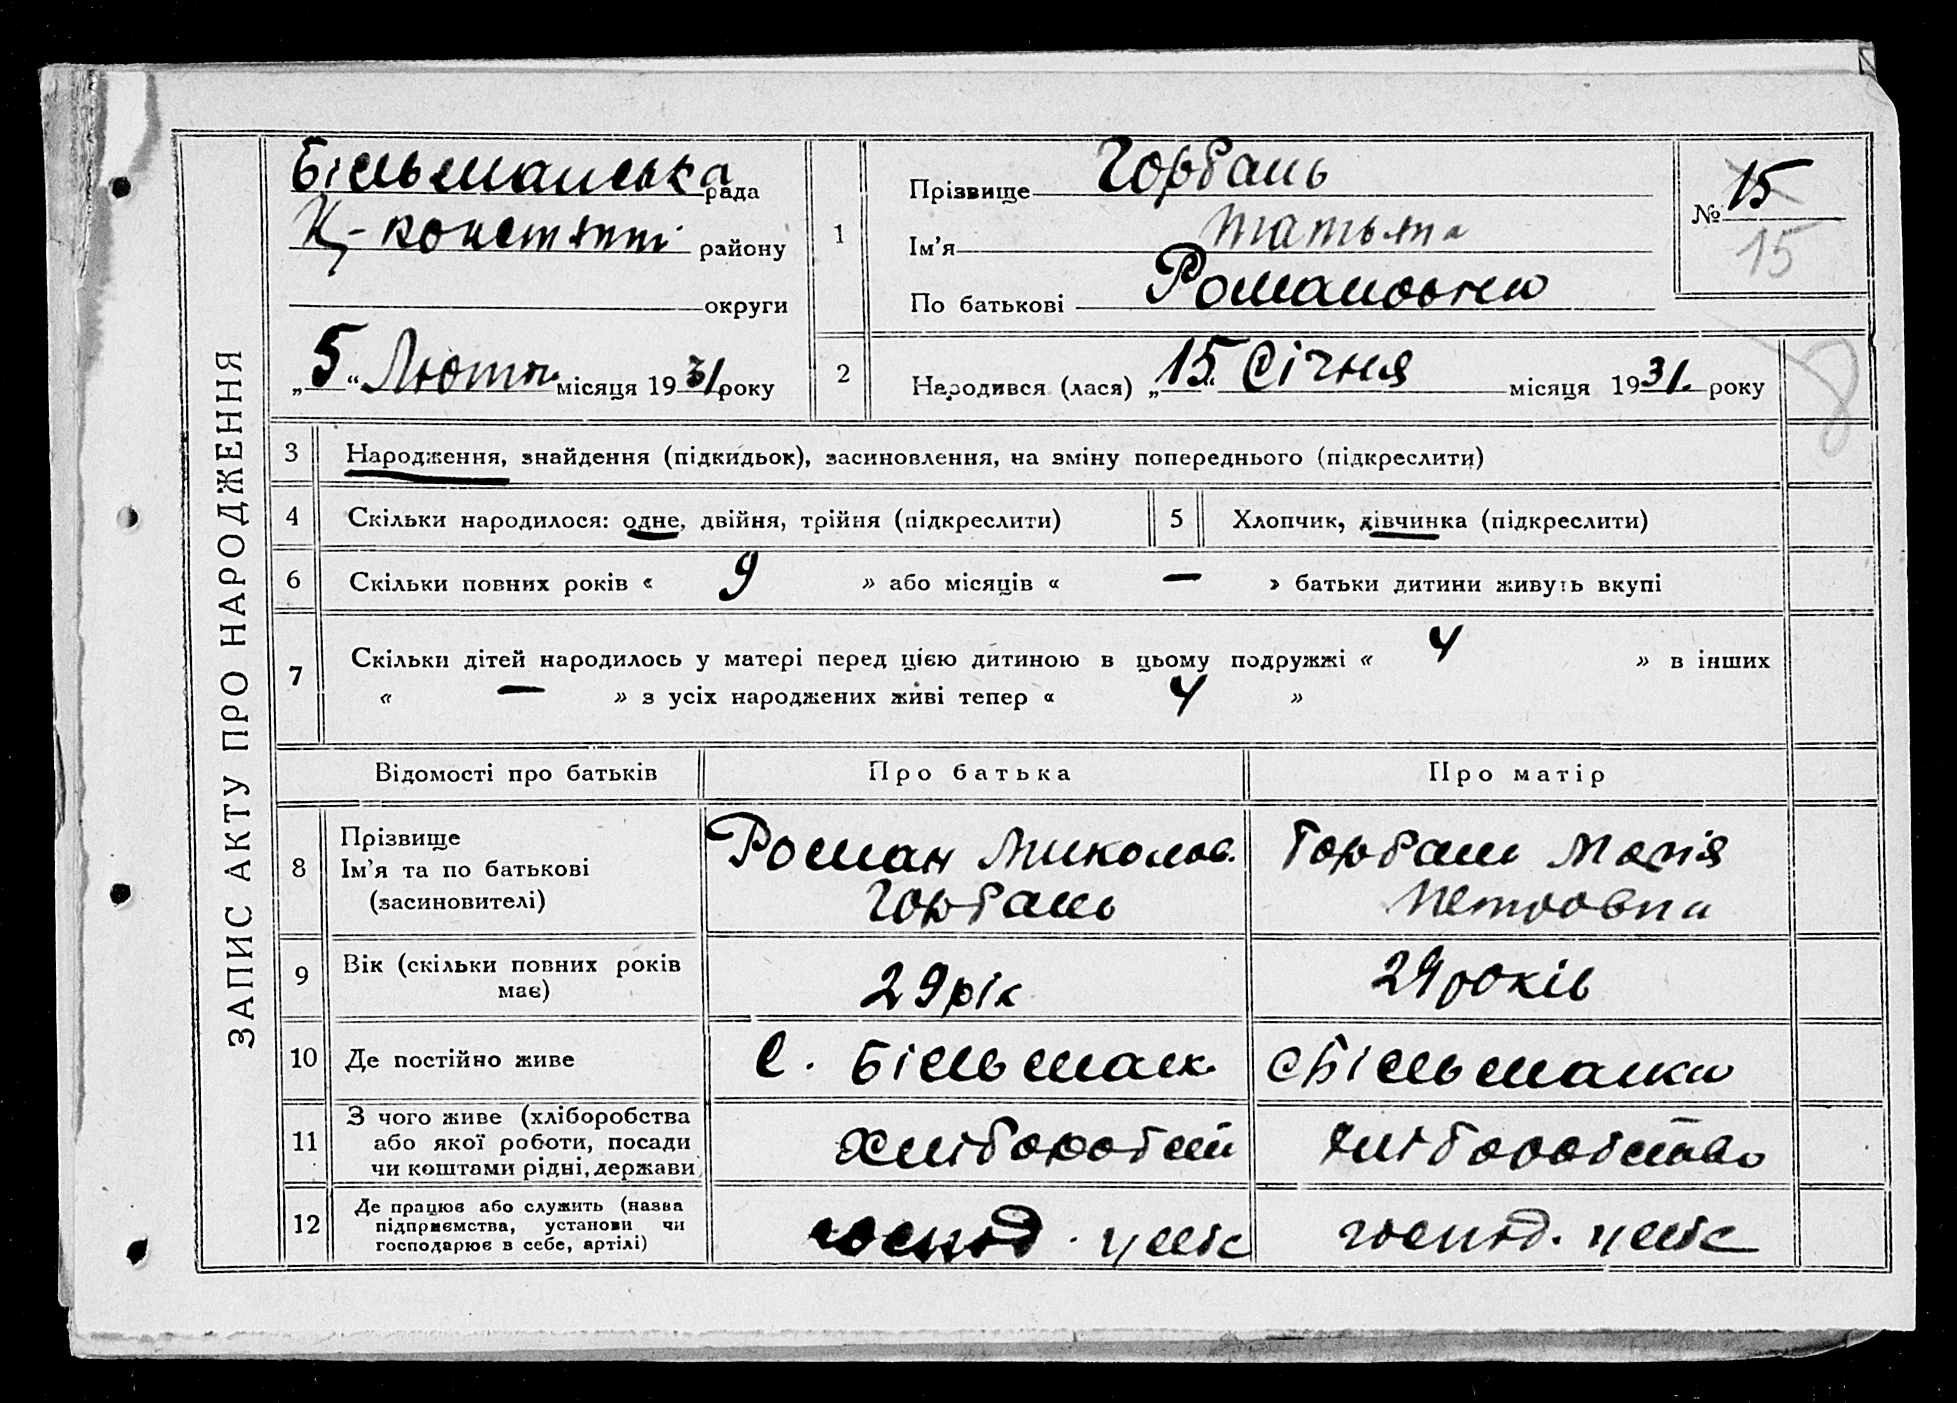 ЗАПИС АКТУ ПРО НАРОДЖЕННЯ
Більманська рада
Ц-констянт. району
округи
„5“ Лютого місяця 1931 року
1
Прізвище Горбань
Ім'я Татьяна
По батькові Романовна
№ 15
15
2
Народився (лася) „15“ Січня місяця 1931. року
3 Народження, знайдення (підкидьок), засиновлення, на зміну попереднього (підкреслити)
4 Скільки народилося: одне, двійня, трійня (підкреслити)
5 Хлопчик, дівчинка (підкреслити)
6 Скільки повних років « 9 » або місяців « — » батьки дитини живуть вкупі
7 Скільки дітей народилось у матері перед цією дитиною в цьому подружжі « 4 » в інших
« — » з усіх народжених живі тепер « 4 »
Відомості про батьків Про батька Про матір
8 Прізвище
Ім'я та по батькові
(засиновителі)
Роман Миколов.
Горбань
Горбань Марія
Петровна
9 Вік (скільки повних років
має)
29 рік
29 років
10 Де постійно живе
с. Більманк.
с Більманка
11 З чого живе (хліборобства
або якої роботи, посади
чи коштами рідні, держави
хлібороб
хліборобство
12 Де працює або служить (назва
підприємства, установи чи
господарює в себе, артілі)
господ.
господ.